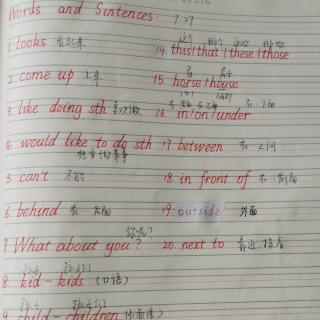 Words and Sentences
1. looks 看起来
2. come up 上来
3. like doing sth 喜欢做
4. would like to do sth
想要做某事
5 can't 不能
6. behind 在 后面
你呢?
7 What about you?
8. kid - kids (口语)
9 child - children
这个 那个 这些 那些
14. this/that/these/those
马 房子
15. horse/house
16. in/on/under
17 between 在 之间
18. in front of 在 前面
19. outside 外面
20. next to 靠近,挨着